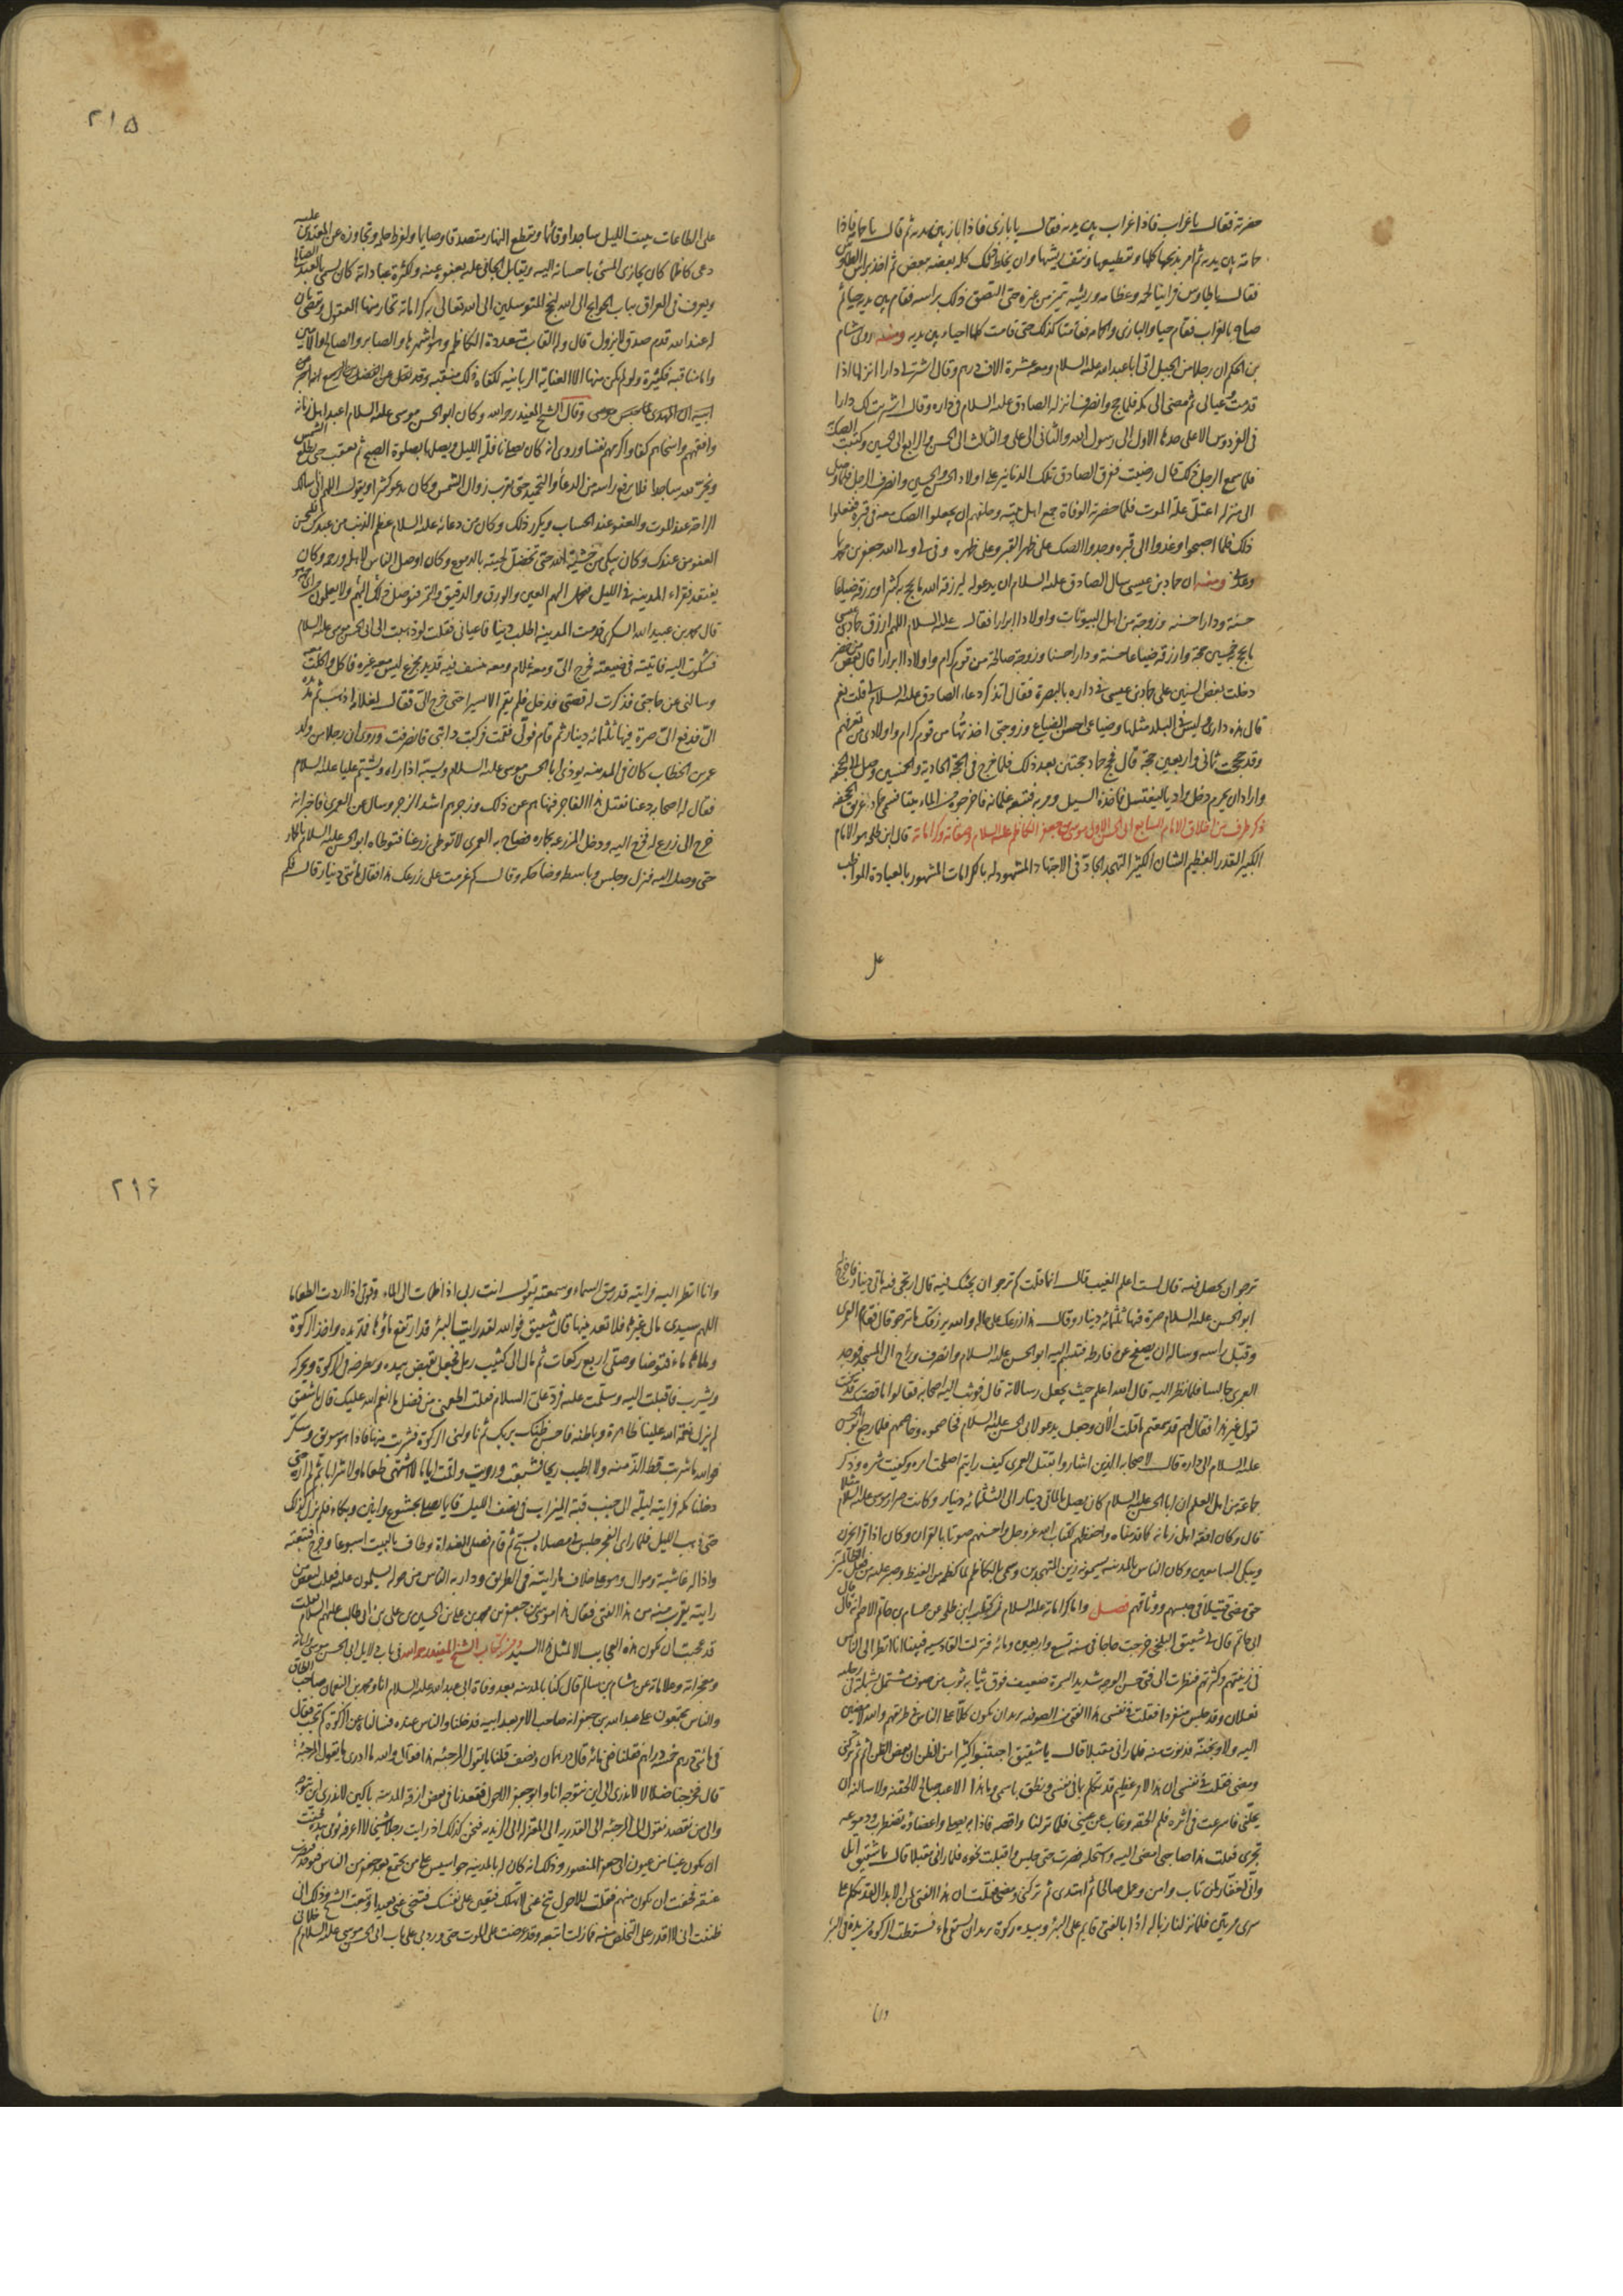 حضرته فقال يا غراب فاذا غراب بين يديه فقال يا بازي فاذا باز بين يديه ثم قال يا حمامة فاذا
حمامة بين يديه ثم امر بذبحها كلها وتقطيعها ونتف ريشها وان يخلط ذلك كله بعضه ببعض ثم اخذ براس الطاوس
فقال يا طاوس فراينا لحمه وعظامه وريشه تميز من غيره حتى التصق ذلك براسه فقام بين يديه حيا ثم
صاح بالغراب فقام حيا والبازي والحمامة فقامتا كذلك حتى قامت كلها احياء بين يديه ومنه روى هشام
بن الحكم ان رجلا من الجبل اتى ابا عبد الله عليه السلام ومعه عشرة الاف درهم وقال اشتر لي دارا انزلها اذا
قدمت وعيالي ثم مضى الى مكة فلما حج وانصرف انزله الصادق عليه السلام في داره وقال اشتريت لك دارا
في الفردوس الاعلى حدها الاول الى رسول الله والثاني الى علي والثالث الى الحسن والرابع الى الحسين وكتبت الصك
فلما سمع الرجل ذلك قال رضيت ففرق الصادق تلك الدنانير على اولاد الحسن والحسين وانصرف الرجل فلما وصل
الى منزله اعتل علة الموت فلما حضرته الوفاة جمع اهل بيته وحلفهم ان يجعلوا الصك معه في قبره ففعلوا
ذلك فلما اصبحوا وغدوا الى قبره وجدوا الصك على ظهر القبر وعلى ظهره وفى لي ولي الله جعفر بن محمد بما
وعدني ومنه ان حماد بن عيسى سال الصادق عليه السلام ان يدعو له ليرزقه الله ما يحج به كثيرا ويرزقه ضياعا
حسنة ودارا حسنة وزوجة من اهل البيوتات واولادا ابرارا فقال عليه السلام اللهم ارزق حماد بن عيسى
ما يحج به خمسين حجة وارزقه ضياعا حسنة ودارا حسنا وزوجة صالحة من قوم كرام واولادا ابرارا قال بعض من حضر
دخلت بعض السنين على حماد بن عيسى في داره بالبصرة فقال اتذكر دعاء الصادق عليه السلام لي قلت نعم
قال هذه داري وليس في البلد مثلها وضياعي احسن الضياع وزوجتي اخذتها من قوم كرام واولادي من تعرفهم
وقد حججت ثماني واربعين حجة قال فحج حماد حجتين بعد ذلك فلما خرج في الحجة الحادية والخمسين وصل الى الجحفة
واراد ان يحرم دخل واديا ليغتسل فاخذه السيل ومر به فتبعه غلمانه فاخرجوه من الماء ميتا فسمي حماد غريق الجحفة
ذكر طرف من اخلاق الامام السابع ابي الحسن الاول موسى بن جعفر الكاظم عليه السلام وصفاته وكراماته قال ابن طلحة هو الامام
الكبير القدر العظيم الشان الكثير التهجد الجاد في الاجتهاد المشهود له بالكرامات المشهور بالعبادة المواظب
على
٢١٥
على الطاعات يبيت الليل ساجدا وقائما ويقطع النهار متصدقا وصايما ولفرط حلمه وتجاوزه عن المعتدين عليه
دعي كاظما كان يجازي المسئ باحسانه اليه ويقابل الجاني عليه بعفوه عنه ولكثرة عباداته كان يسمى بالعبد الصالح
ويعرف في العراق بباب الحوايج الى الله لنجح المتوسلين الى الله تعالى به كراماته تحار منها العقول وتقضي بان
له عند الله قدم صدق لا يزول قال وله القاب متعددة الكاظم وهو اشهرها والصابر والصالح والامين
واما مناقبه فكثيرة ولو لم يكن منها الا العناية الربانية لكفاه ذلك منقبة وقد نقل عن الفضل بن الربيع انه اخبر عن
ابيه ان المهدي لما حبس موسى وقال الشيخ المفيد رحمه الله وكان ابو الحسن موسى عليه السلام اعبد اهل زمانه
وافقههم واسخاهم كفا واكرمهم نفسا وروي انه كان يصلي نافلة الليل ويصلها بصلوة الصبح ثم يعقب حتى تطلع الشمس
ويخر لله ساجدا فلا يرفع راسه من الدعاء والتحميد حتى يقرب زوال الشمس وكان يدعو كثيرا ويقول اللهم اني اسالك
الراحة عند الموت والعفو عند الحساب ويكرر ذلك وكان من دعائه عليه السلام عظم الذنب من عبدك فليحسن
العفو من عندك وكان يبكي من خشية الله حتى تخضل لحيته بالدموع وكان اوصل الناس لاهله ورحمه وكان
يفتقد فقراء المدينة في الليل فيحمل اليهم العين والورق والدقيق والتمر فيوصل ذلك اليهم ولا يعلمون من اي جهة هو
قال محمد بن عبيد الله البكري قدمت المدينة اطلب دينا فاعياني فقلت لو ذهبت الى ابي الحسن موسى عليه السلام
فشكوت اليه فاتيته في ضيعته فخرج الي ومعه غلام ومعه منسف فيه قديد مجزع ليس معه غيره فاكل واكلت معه
وسالني عن حاجتي فذكرت له قصتي فدخل فلم يقم الا يسيرا حتى خرج الي فقال لغلامه اذهب ثم مد يده
الي فدفع الي صرة فيها ثلثمائة دينار ثم قام فولى فقمت فركبت دابتي فانصرفت وروي ان رجلا من ولد
عمر بن الخطاب كان في المدينة يوذي ابا الحسن موسى عليه السلام ويسبه اذا راه ويشتم عليا عليه السلام
فقال له اصحابه دعنا نقتل هذا الفاجر فنهاهم عن ذلك وزجرهم اشد الزجر وسال عن العمري فاخبر انه
خرج الى زرع له فخرج اليه ودخل المزرعة بحماره فصاح به العمري لا توطي زرعنا فتوطاه ابو الحسن عليه السلام بالحمار
حتى وصل اليه فنزل وجلس وباسطه وضاحكه وقال كم غرمت على زرعك هذا فقال مائتي دينار قال فكم
ترجو ان يحصل فيه قال لست اعلم الغيب قال انما قلت كم ترجو ان يجيئك فيه قال ارتجي فيه مائتي دينار فاخرج
ابو الحسن عليه السلام صرة فيها ثلثمائة دينار وقال هذا زرعك على حاله والله يرزقك ما ترجو قال فقام العمري
وقبل راسه وساله ان يصفح عن فارطه فتبسم اليه ابو الحسن عليه السلام وانصرف وراح الى المسجد فوجد
العمري جالسا فلما نظر اليه قال الله اعلم حيث يجعل رسالاته قال فوثب اليه اصحابه فقالوا ما قصتك قد كنت
تقول غير هذا فقال لهم قد سمعتم ما قلت الآن وجعل يدعو لابي الحسن عليه السلام فخاصموه وخاصمهم فلما رجع ابو الحسن
عليه السلام الى داره قال لاصحابه الذين اشاروا بقتل العمري كيف رايتم اصلحت امره وكفيت شره وذكر
جماعة من اهل العلم ان ابا الحسن عليه السلام كان يصل بالمائتي دينار الى الثلثمائة دينار وكانت صرار موسى عليه السلام مثلا
قال وكان افقه اهل زمانه كما قدمناه واحفظهم لكتاب الله عز وجل واحسنهم صوتا بالقران وكان اذا قرا يحزن
ويبكي السامعين وكان الناس بالمدينة يسمونه زين المتهجدين وسمي بالكاظم لما كظمه من الغيظ وصبر عليه من فعل الظالمين
حتى مضى قتيلا في حبسهم ووثاقهم فصل واما كراماته عليه السلام فذكر ابن طلحة عن حسام بن حاتم الاصم انه قال قال
ابي حاتم قال لي شقيق البلخي خرجت حاجا في سنة تسع واربعين ومائة فنزلت القادسية فبينا انا انظر الى الناس
في زينتهم وكثرتهم فنظرت الى فتى حسن الوجه شديد السمرة ضعيف فوق ثيابه ثوب من صوف مشتمل بشملة في رجليه
نعلان وقد جلس منفردا فقلت في نفسي هذا الفتى من الصوفية يريد ان يكون كلا على الناس في طريقهم والله لامضين
اليه ولاوبخنه فدنوت منه فلما راني مقبلا قال يا شقيق اجتنبوا كثيرا من الظن ان بعض الظن اثم ثم تركني
ومضى فقلت في نفسي ان هذا لامر عظيم قد تكلم بما في نفسي ونطق باسمي وما هذا الا عبد صالح لالحقنه ولاسالنه ان
يحللني فاسرعت في اثره فلم الحقه وغاب عن عيني فلما نزلنا واقصة فاذا به يصلي واعضاؤه تضطرب ودموعه
تجري فقلت هذا صاحبي امضي اليه واستحله فصبرت حتى جلس واقبلت نحوه فلما راني مقبلا قال يا شقيق اتل
واني لغفار لمن تاب وامن وعمل صالحا ثم اهتدى ثم تركني ومضى فقلت ان هذا الفتى لمن الابدال لقد تكلم على
سري مرتين فلما نزلنا زبالة اذا بالفتى قايم على البئر وبيده ركوة يريد ان يستقي ماء فسقطت الركوة من يده في البئر
وانا
٢١٦
وانا انظر اليه فرايته قد رمق السماء وسمعته يقول انت ربي اذا ظمئت الى الماء وقوتي اذا اردت الطعاما
اللهم سيدي مالي غيرها فلا تعدمنيها قال شقيق فوالله لقد رايت البئر قد ارتفع ماؤها فمد يده واخذ الركوة
وملاها ماء فتوضا وصلى اربع ركعات ثم مال الى كثيب رمل فجعل يقبض بيده ويطرحه في الركوة ويحركه
ويشرب فاقبلت اليه وسلمت عليه فرد علي السلام فقلت اطعمني من فضل ما انعم الله عليك فقال يا شقيق
لم تزل نعمة الله علينا ظاهرة وباطنة فاحسن ظنك بربك ثم ناولني الركوة فشربت منها فاذا هو سويق وسكر
فوالله ما شربت قط الذ منه ولا اطيب ريحا فشبعت ورويت واقمت اياما لا اشتهي طعاما ولا شرابا ثم لم اره حتى
دخلنا مكة فرايته ليلة الى جنب قبة الميزاب في نصف الليل قايما يصلي بخشوع وانين وبكاء فلم يزل كذلك
حتى ذهب الليل فلما راى الفجر جلس في مصلاه يسبح ثم قام فصلى الغداة وطاف بالبيت اسبوعا وخرج فتبعته
واذا له غاشية وموال وهو على خلاف ما رايته في الطريق ودار به الناس من حوله يسلمون عليه فقلت لبعض من
رايته يقرب منه من هذا الفتى فقال هذا موسى بن جعفر بن محمد بن علي بن الحسين بن علي بن ابي طالب عليهم السلام فقلت
قد عجبت ان تكون هذه العجايب الا لمثل هذا السيد ومن كتاب الشيخ المفيد رحمه الله في باب دلايل ابي الحسن موسى واياته
ومعجزاته وعلاماته عن هشام بن سالم قال كنا بالمدينة بعد وفاة ابي عبد الله عليه السلام انا ومحمد بن النعمان صاحب الطاق
والناس مجتمعون على عبد الله بن جعفر انه صاحب الامر بعد ابيه فدخلنا والناس عنده فسالناه عن الزكوة في كم تجب فقال
في مائتي درهم خمسة دراهم فقلنا ففي مائة قال درهمان ونصف قلنا ما يقول المرجئة هذا فقال والله ما ادري ما يقول المرجئة
قال فخرجنا ضلالا لا ندري الى اين نتوجه انا وابو جعفر الاحول فقعدنا في بعض ازقة المدينة باكين لا ندري اين نتوجه
والى من نقصد نقول الى المرجئة الى القدرية الى المعتزلة الى الزيدية فنحن كذلك اذ رايت رجلا شيخا لا اعرفه يومي بيده فخفت
ان يكون عينا من عيون ابي جعفر المنصور وذلك انه كان له بالمدينة جواسيس على من يجتمع بعد جعفر من الناس فيوخذ فيضرب
عنقه فخفت ان يكون منهم فقلت للاحول تنح عني لا تهلك فتعين على نفسك فتنحى عني بعيدا وتبعت الشيخ وذلك اني
ظننت اني لا اقدر على التخلص منه فما زلت اتبعه وقد عرضت على الموت حتى ورد بي على باب ابي الحسن موسى عليه السلام ثم خلاني